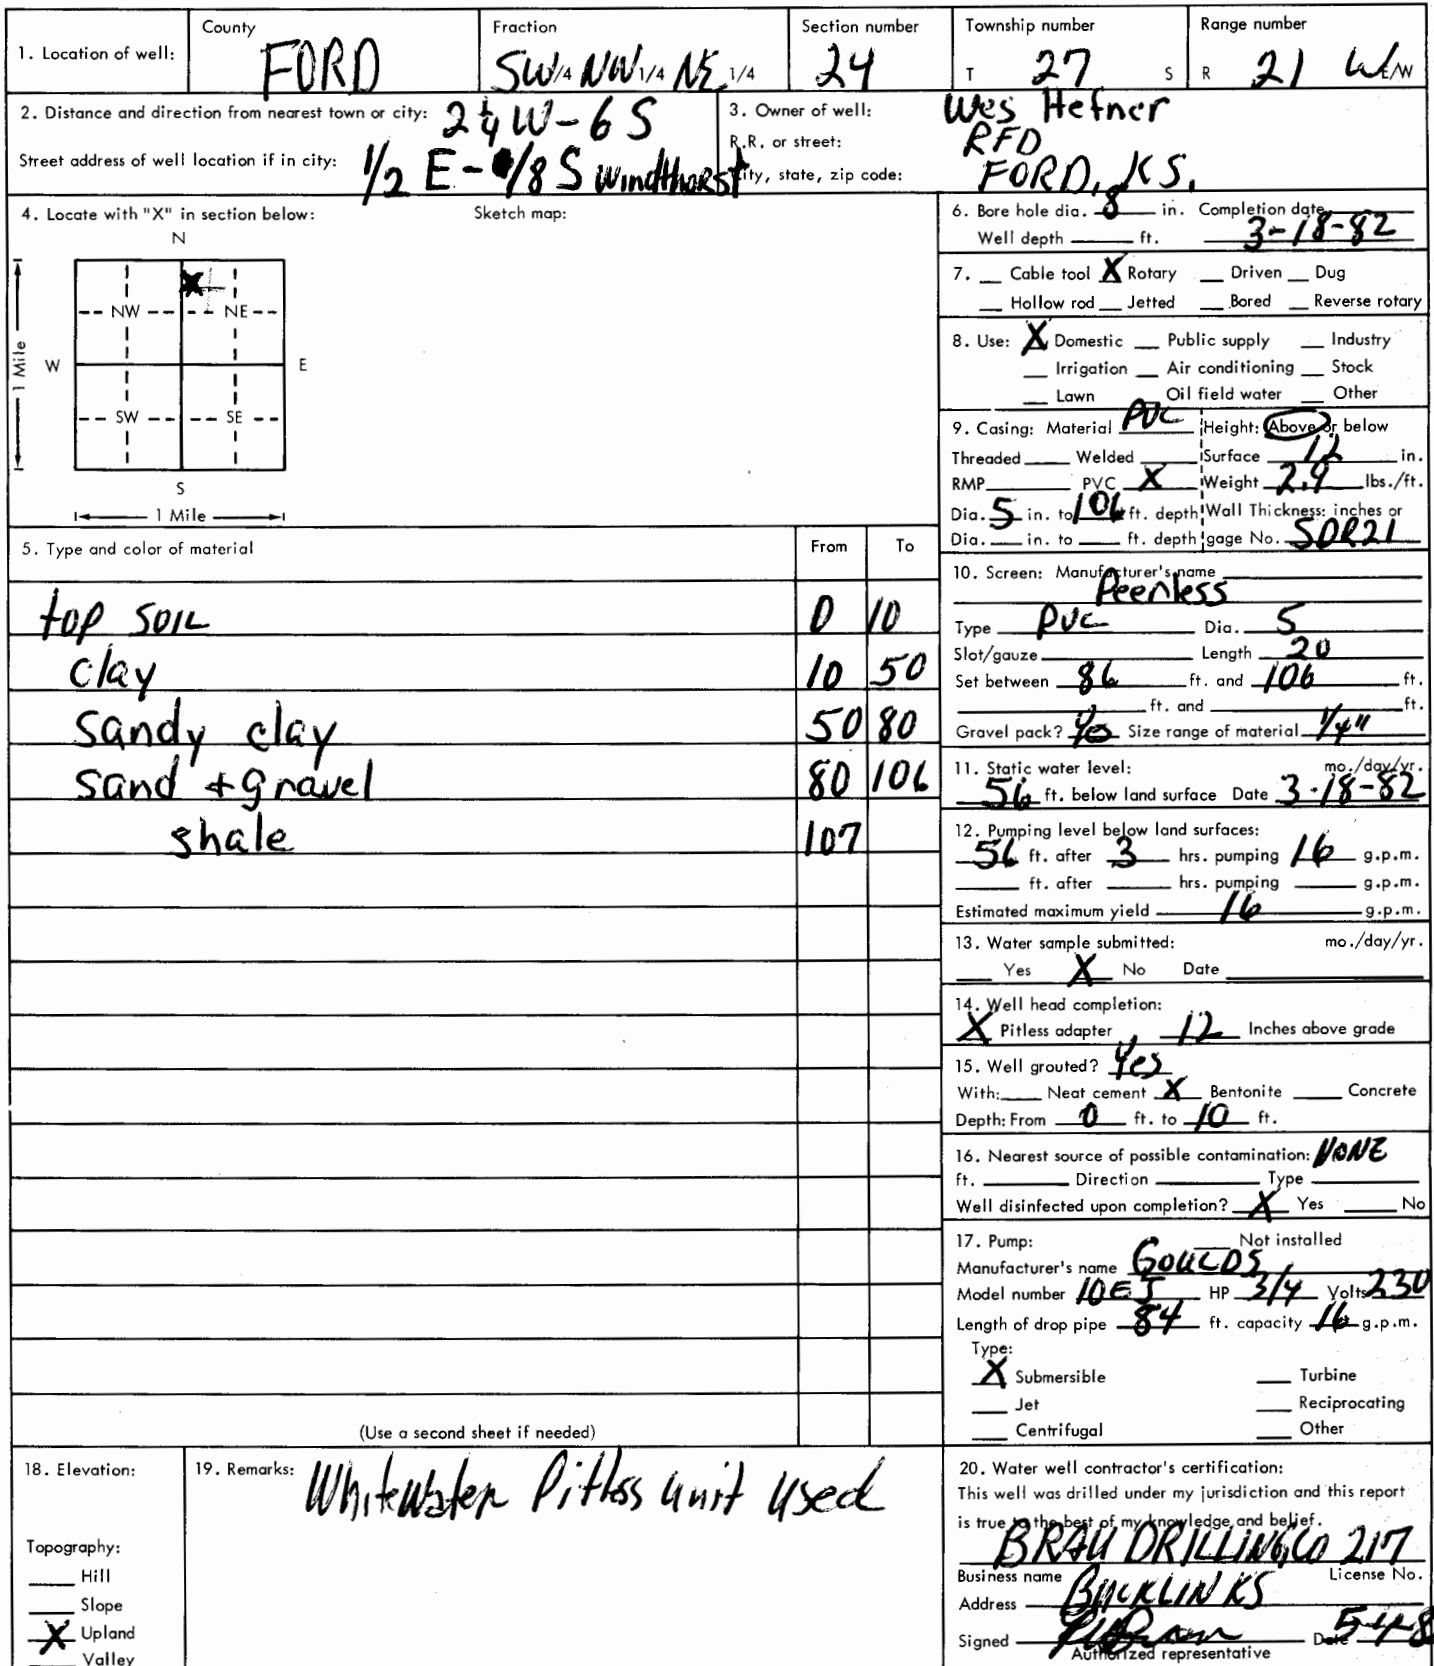 1. Location of well: County FORD Fraction SW 1/4 NW 1/4 NE 1/4 Section number 24 Township number T 27 S Range number R 21 W E/W
2. Distance and direction from nearest town or city: 2 1/4 W - 6 S
Street address of well location if in city: 1/2 E - 1/8 S Windthorst
3. Owner of well: Wes Hefner
R.R. or street: RFD
City, state, zip code: FORD, KS.
4. Locate with "X" in section below: Sketch map:
N
NW NE
W E
SW SE
S
1 Mile
1 Mile
X
5. Type and color of material From To
top soil 0 10
clay 10 50
sandy clay 50 80
sand + gravel 80 106
shale 107
(Use a second sheet if needed)
6. Bore hole dia. 8 in. Completion date
Well depth ft. 3-18-82
7. Cable tool X Rotary Driven Dug
Hollow rod Jetted Bored Reverse rotary
8. Use: X Domestic Public supply Industry
Irrigation Air conditioning Stock
Lawn Oil field water Other
9. Casing: Material PVC Height: Above or below
Threaded Welded Surface 12 in.
RMP PVC X Weight 2.9 lbs./ft.
Dia. 5 in. to 106 ft. depth Wall Thickness: inches or
Dia. in. to ft. depth gage No. SDR21
10. Screen: Manufacturer's name
Peerless
Type PVC Dia. 5
Slot/gauze Length 20
Set between 86 ft. and 106 ft.
ft. and ft.
Gravel pack? Yes Size range of material 1/4"
11. Static water level: mo./day/yr.
56 ft. below land surface Date 3-18-82
12. Pumping level below land surfaces:
56 ft. after 3 hrs. pumping 16 g.p.m.
ft. after hrs. pumping g.p.m.
Estimated maximum yield 16 g.p.m.
13. Water sample submitted: mo./day/yr.
Yes X No Date
14. Well head completion:
X Pitless adapter 12 Inches above grade
15. Well grouted? Yes
With: Neat cement X Bentonite Concrete
Depth: From 0 ft. to 10 ft.
16. Nearest source of possible contamination: NONE
ft. Direction Type
Well disinfected upon completion? X Yes No
17. Pump: Not installed
Manufacturer's name GOULDS
Model number 10EJ HP 3/4 Volts 230
Length of drop pipe 84 ft. capacity 16 g.p.m.
Type:
X Submersible Turbine
Jet Reciprocating
Centrifugal Other
18. Elevation:
Topography:
Hill
Slope
X Upland
Valley
19. Remarks: Whitewater Pitless unit used
20. Water well contractor's certification:
This well was drilled under my jurisdiction and this report
is true to the best of my knowledge and belief.
BRAU DRILLING CO 217
Business name License No.
Address BUCKLIN KS
Signed Date 5-4-8
Authorized representative